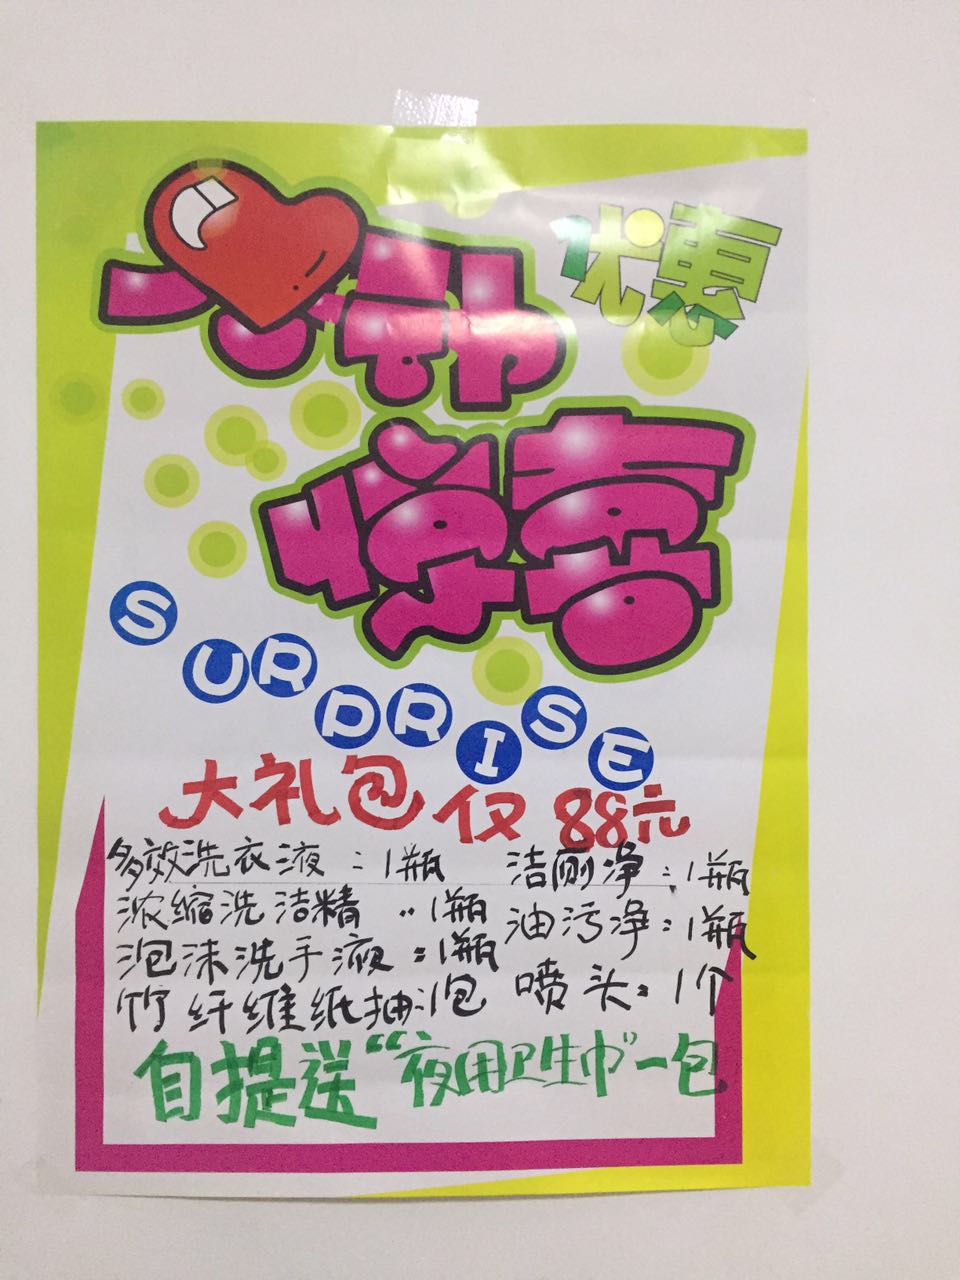 优惠
惊喜
SURPRISE
大礼包仅88元
多效洗衣液:1瓶 洁厕净:1瓶
浓缩洗洁精:1瓶 油污净:1瓶
泡沫洗手液:1瓶 喷头:1个
竹纤维纸抽:1包
自提送“夜用卫生巾”一包